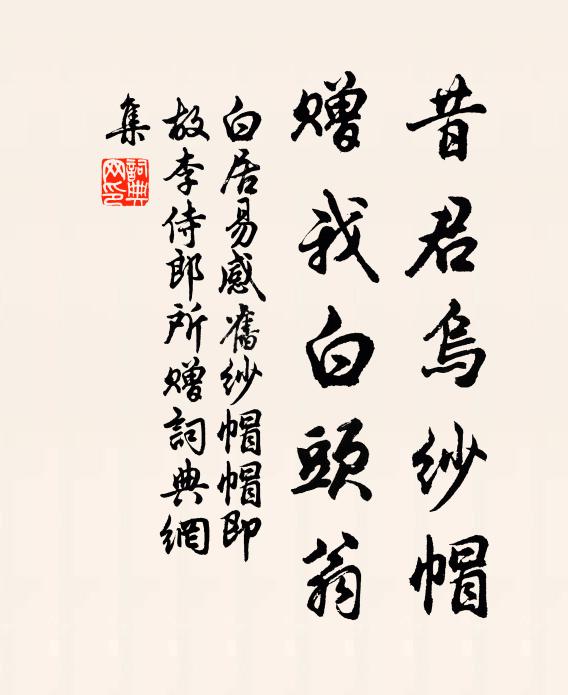 昔君烏紗帽
贈我白頭翁
白居易感舊紗帽帽即
故李侍郎所贈詞典網
集
詞典
网印